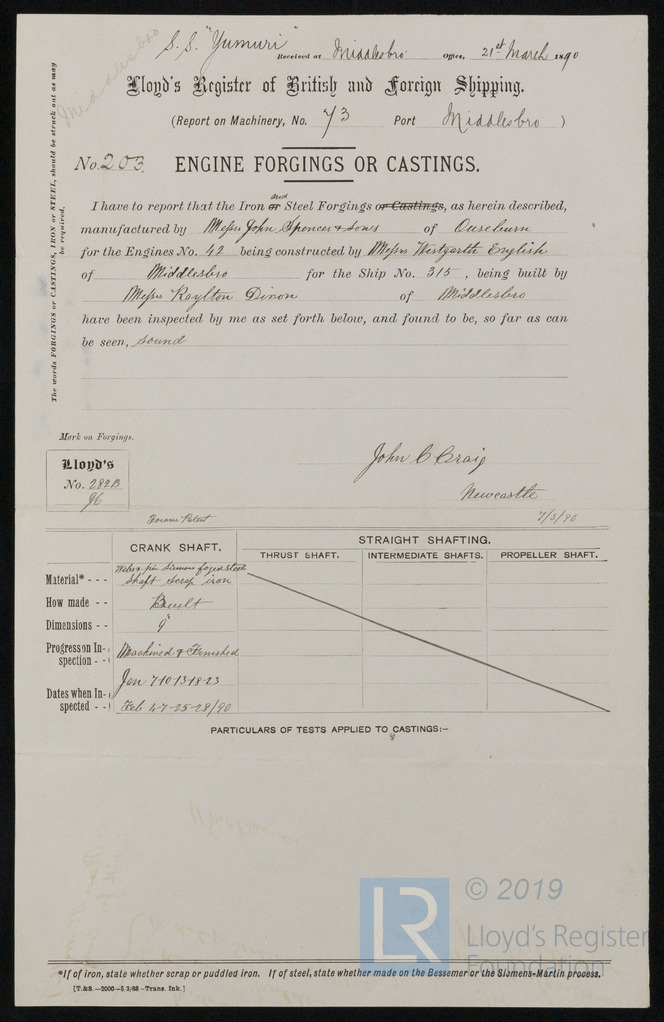 S. S. "Yumuri"
Received at Middlesbro Office, 21st March 1890
Middlesbro
Lloyd's Register of British and Foreign Shipping.
(Report on Machinery, No. 73 Port Middlesbro )
The words FORGINGS or CASTINGS, IRON or STEEL, should be struck out as may be required.
No. 203. ENGINE FORGINGS OR CASTINGS.
I have to report that the Iron or and Steel Forgings or Castings, as herein described,
manufactured by Messrs John Spencer & Sons of Ouseburn
for the Engines No. 42 being constructed by Messrs Westgarth English
of Middlesbro for the Ship No. 315 , being built by
Messrs Raylton Dixon of Middlesbro
have been inspected by me as set forth below, and found to be, so far as can
be seen, sound
Mark on Forgings.
Lloyd's
No. 282B
96
John C Craig
Newcastle
7/3/90
Patent
CRANK SHAFT.
STRAIGHT SHAFTING.
THRUST SHAFT. INTERMEDIATE SHAFTS. PROPELLER SHAFT.
Material* - - - Webs & pin Siemens forged steel
Shaft scrap iron
How made - - Built
Dimensions - - 9"
Progress on Inspection - - Machined & Finished
Dates when Inspected - - Jan 7-10-13-18-23
Feb 4-7-25-28/90
PARTICULARS OF TESTS APPLIED TO CASTINGS:—
LR © 2019
Lloyd's Register
Foundation
*If of iron, state whether scrap or puddled iron. If of steel, state whether made on the Bessemer or the Siemens-Martin process.
[T.&S.—2000—5/3/88—Trans. Ink.]